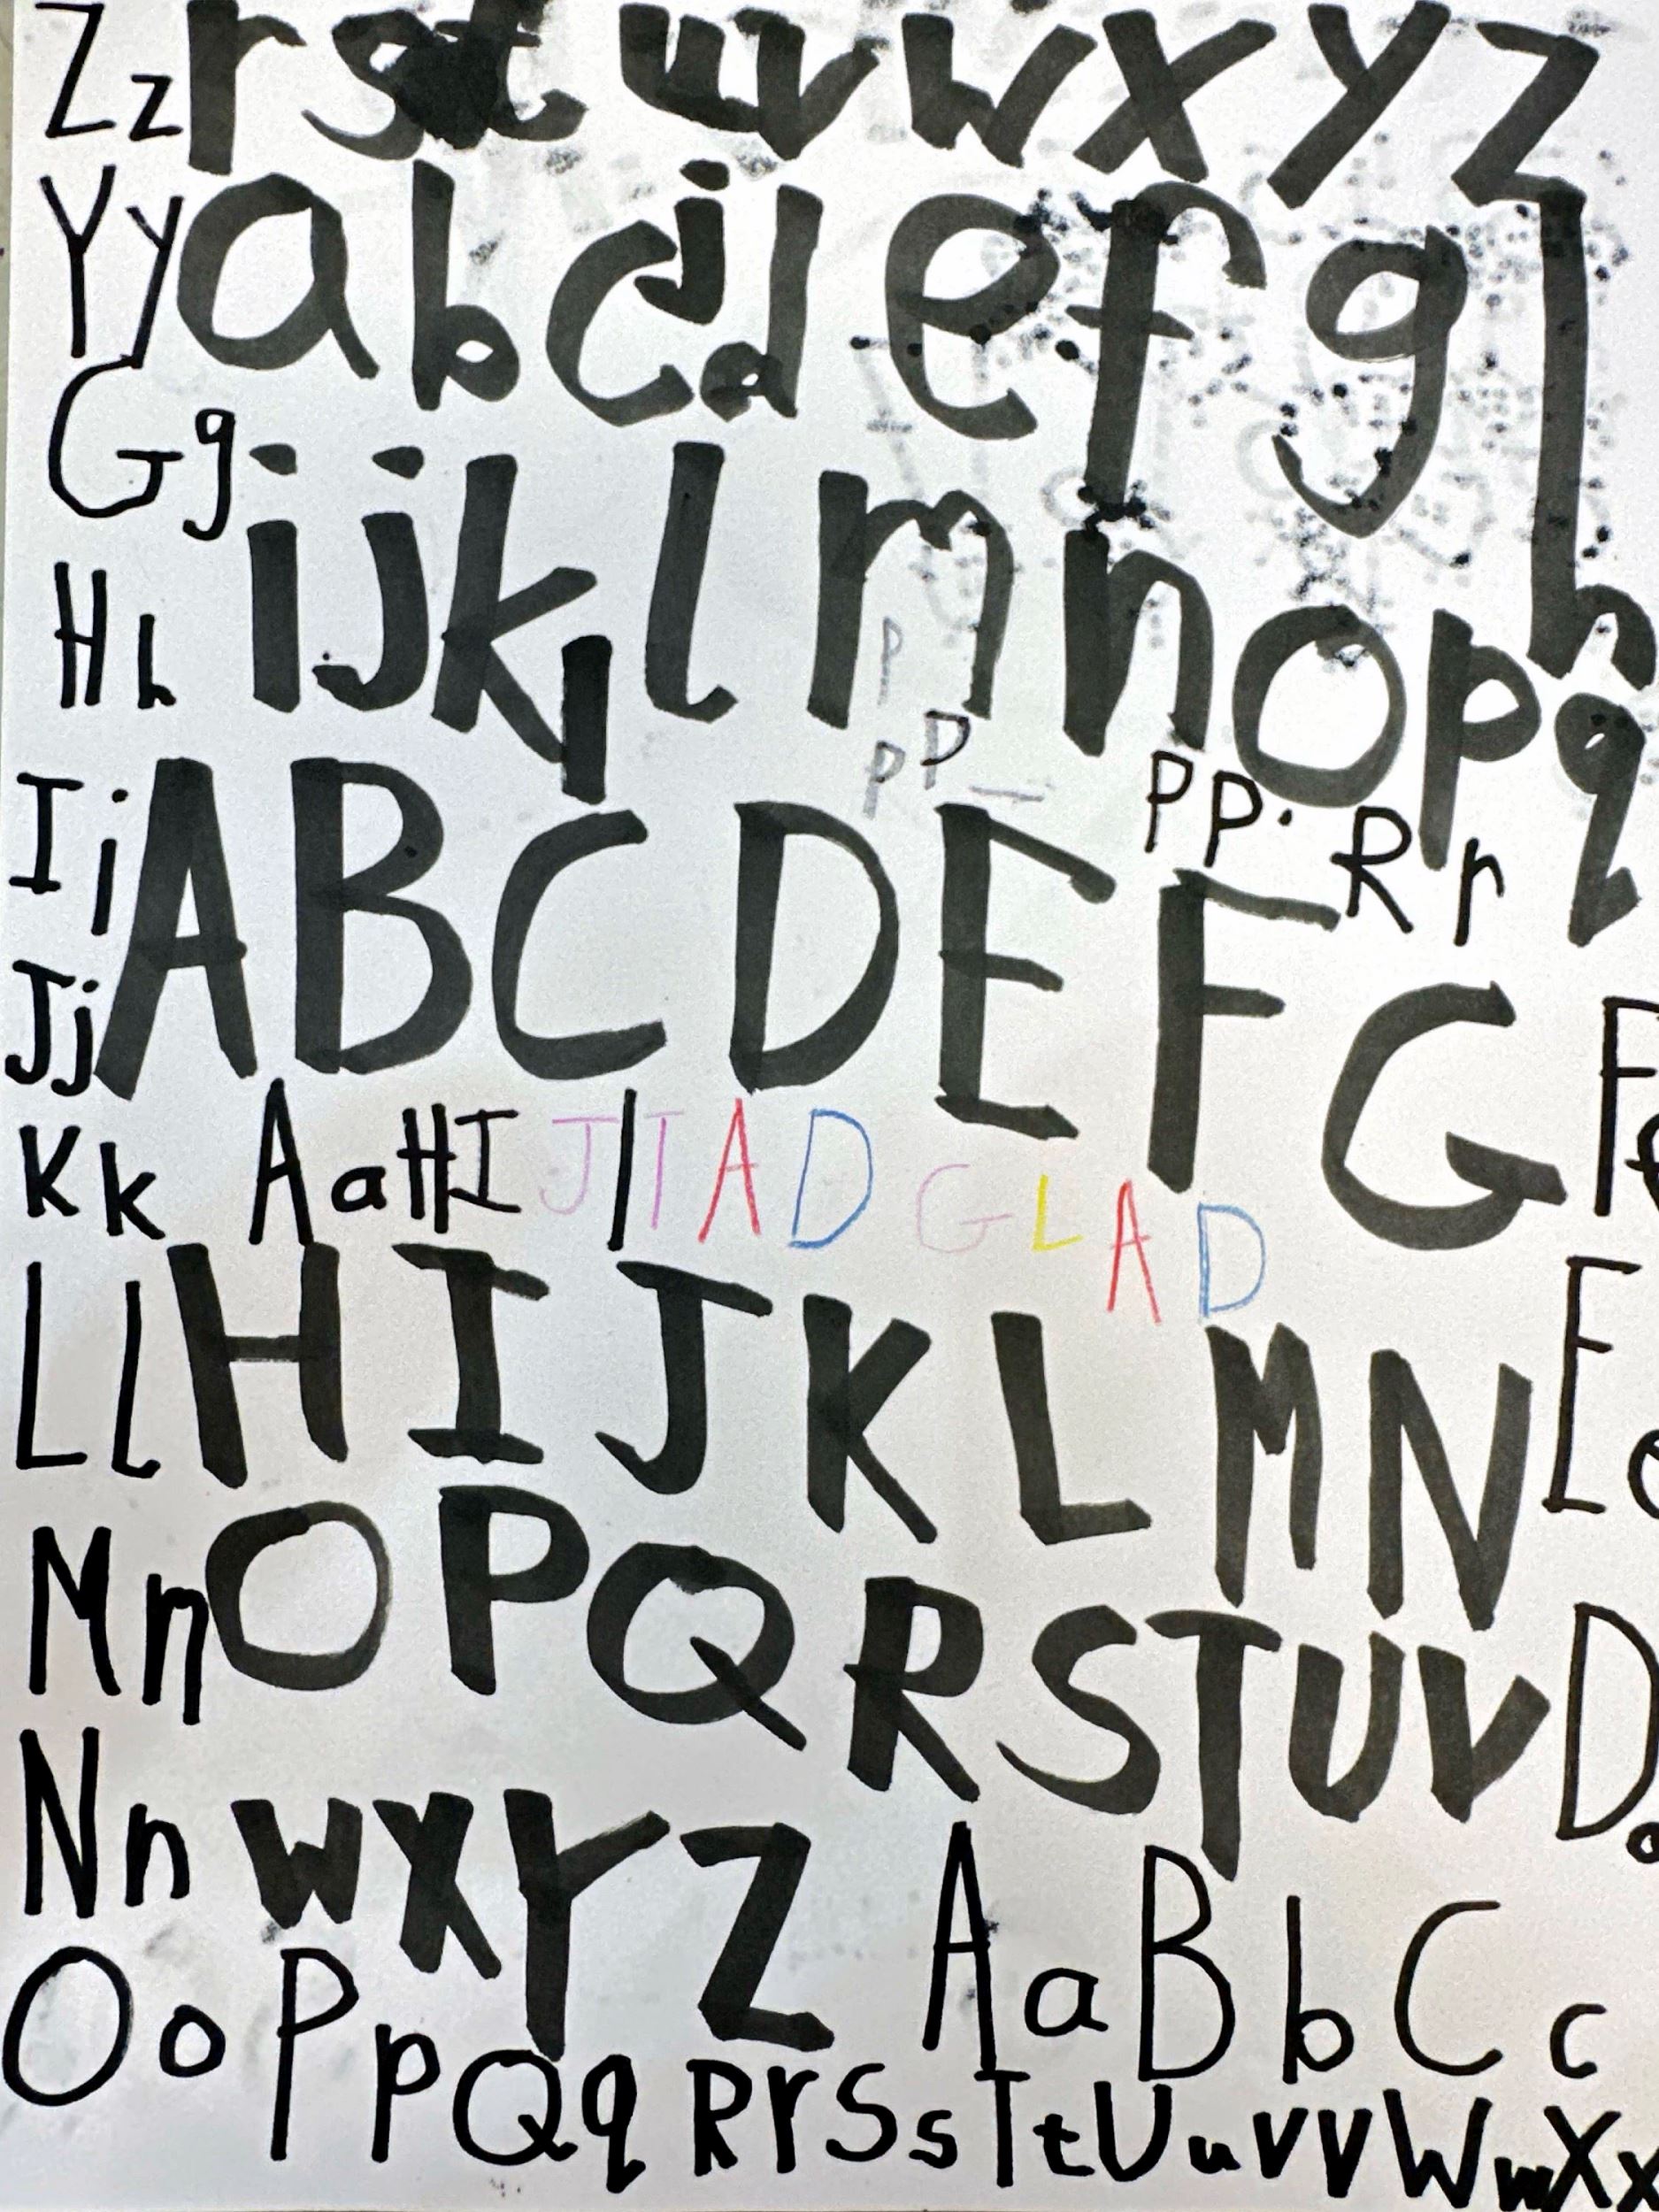 Zz r s t u v w x y z
Yy a b c j d e f g h
Gg i j k l m n o p q
Hh l
P
P P
PP. Rr
Ii A B C D E F G
Jj
Kk Aa H I J I T A D G L A D
Ll H I J K L M N E e
Mn O P Q R S T U V D
Nn W X Y Z Aa Bb Cc
Oo Pp Qq Rr Ss Tt Uu Vv Ww Xx